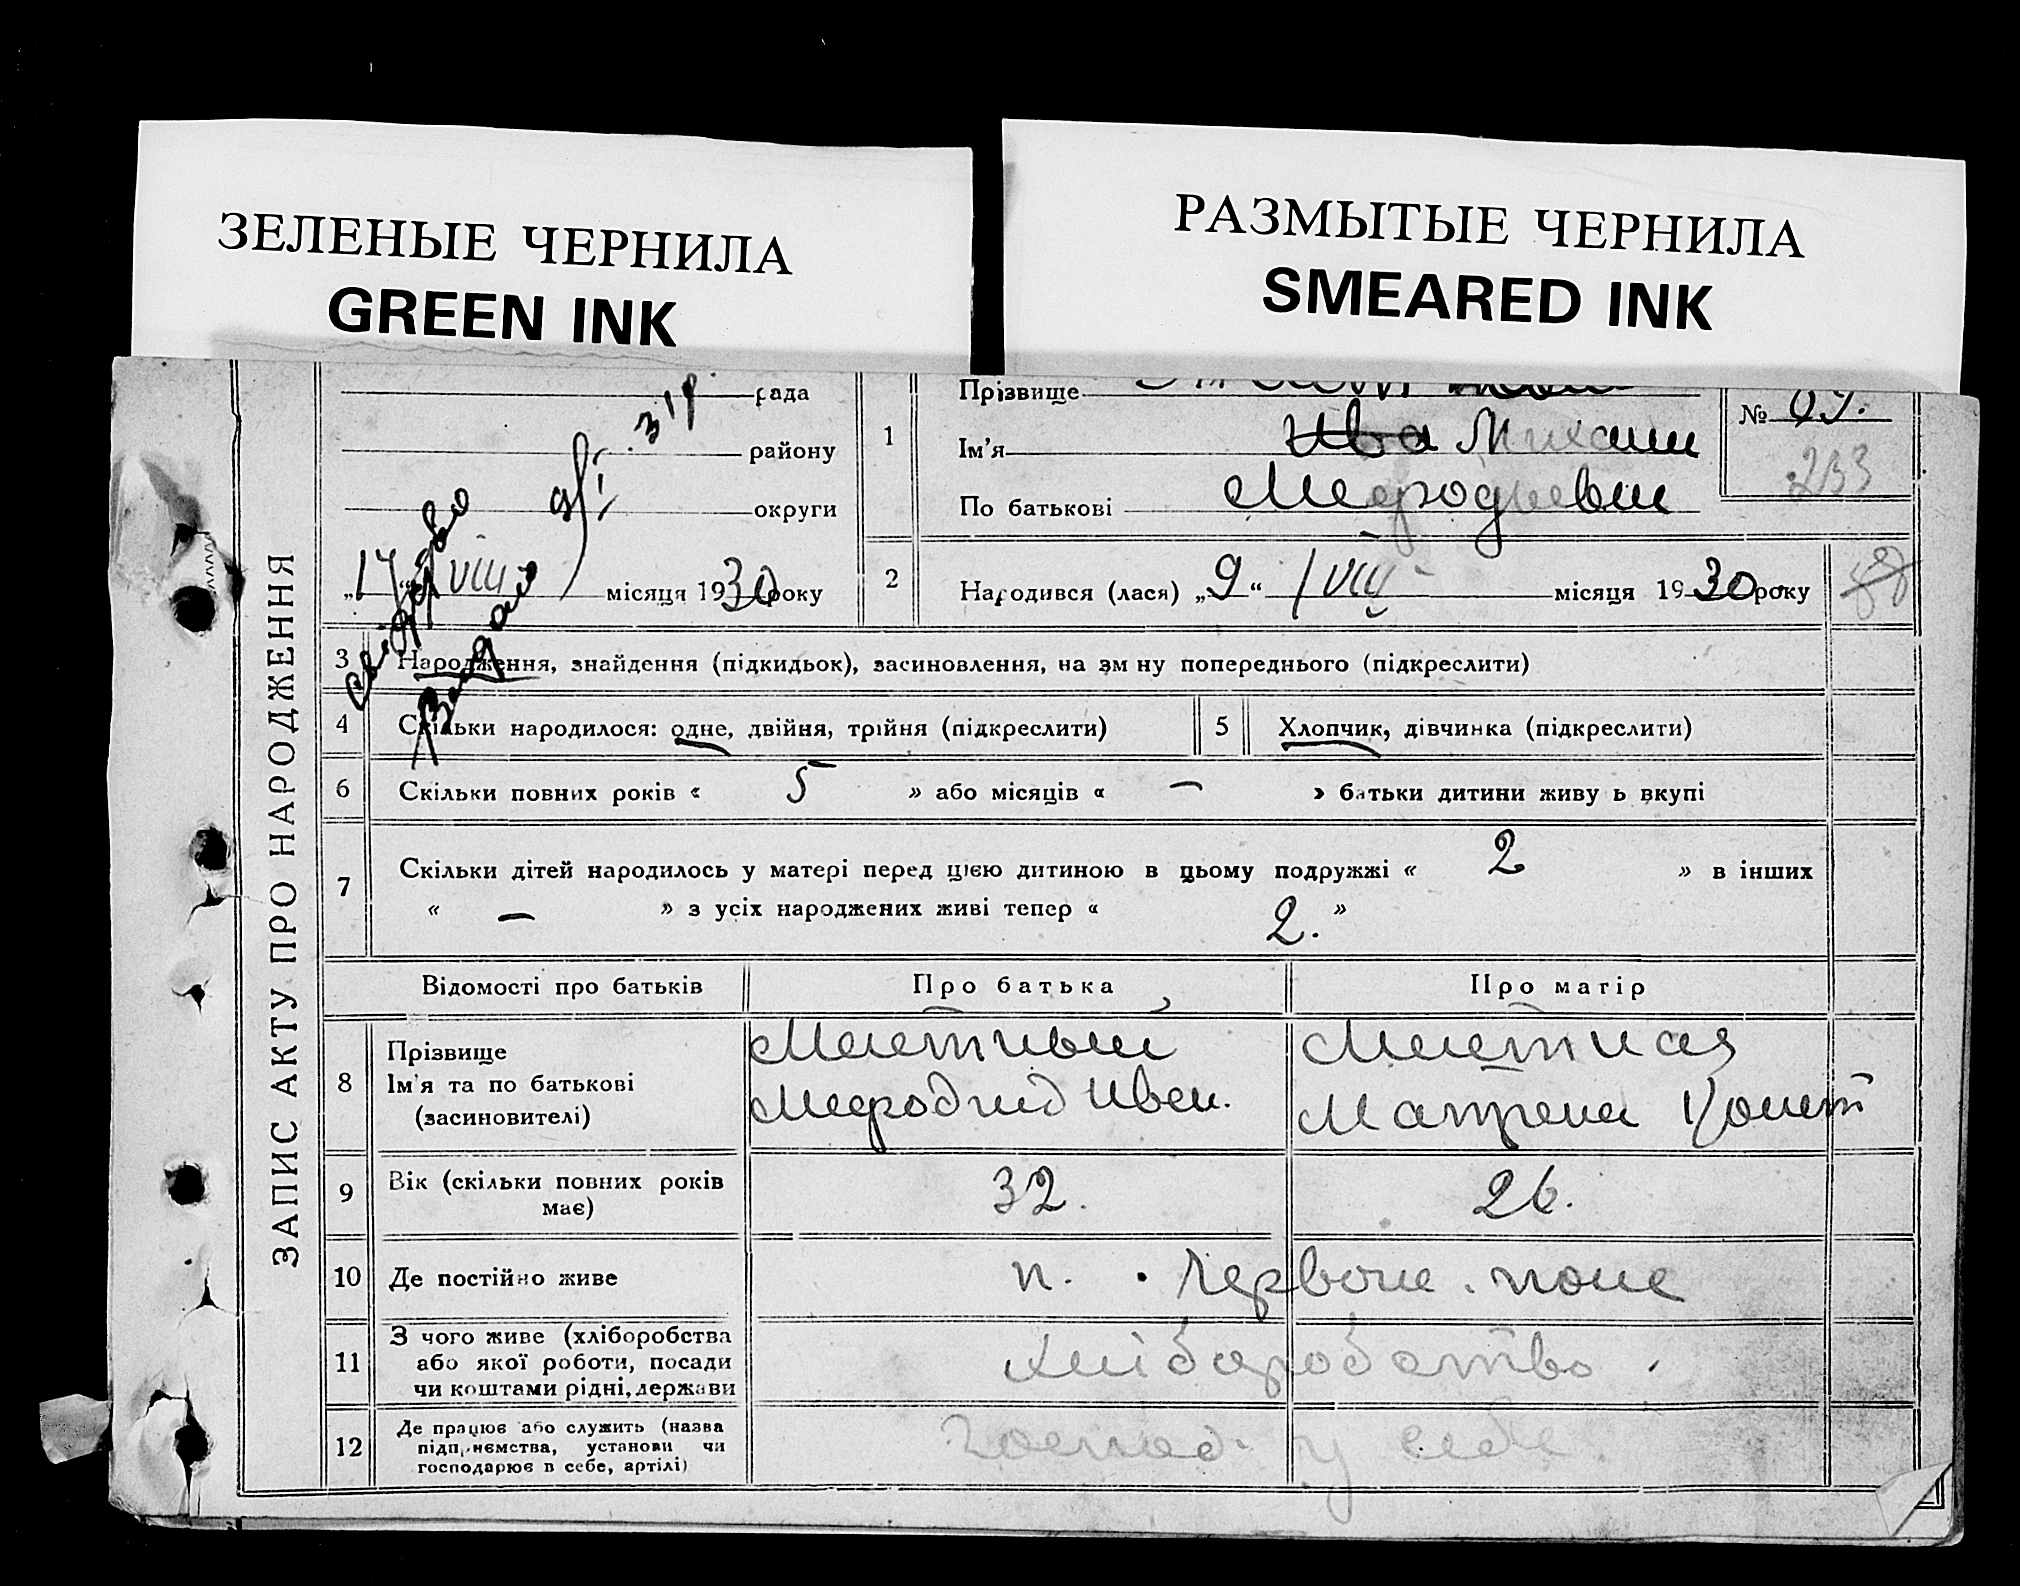 ЗЕЛЕНЫЕ ЧЕРНИЛА
GREEN INK
РАЗМЫТЫЕ ЧЕРНИЛА
SMEARED INK
ЗАПИС АКТУ ПРО НАРОДЖЕННЯ
рада
району
округи
„17“ VIII місяця 1930 року
Видано
1
Прізвище
Ім'я Ива Михаил
По батькові Мефодиевич
№ 69.
233
2
Народився (лася) „9“ VIII місяця 1930 року
3 Народження, знайдення (підкидьок), засиновлення, на зм ну попереднього (підкреслити)
4 Скільки народилося: одне, двійня, трійня (підкреслити)
5 Хлопчик, дівчинка (підкреслити)
6 Скільки повних років « 5 » або місяців « — » батьки дитини живу ь вкупі
7 Скільки дітей народилось у матері перед цією дитиною в цьому подружжі « 2 » в інших
« — » з усіх народжених живі тепер « 2. »
Відомості про батьків Про батька Про матір
8 Прізвище
Ім'я та по батькові
(засиновителі)
Мефодий Иван.
Матрена
9 Вік (скільки повних років має) 32. 26.
10 Де постійно живе п. Червоне поле
11 З чого живе (хліборобства
або якої роботи, посади
чи коштами рідні, держави
хліборобство
12 Де працює або служить (назва
підприємства, установи чи
господарює в себе, артілі)
господ. у себе